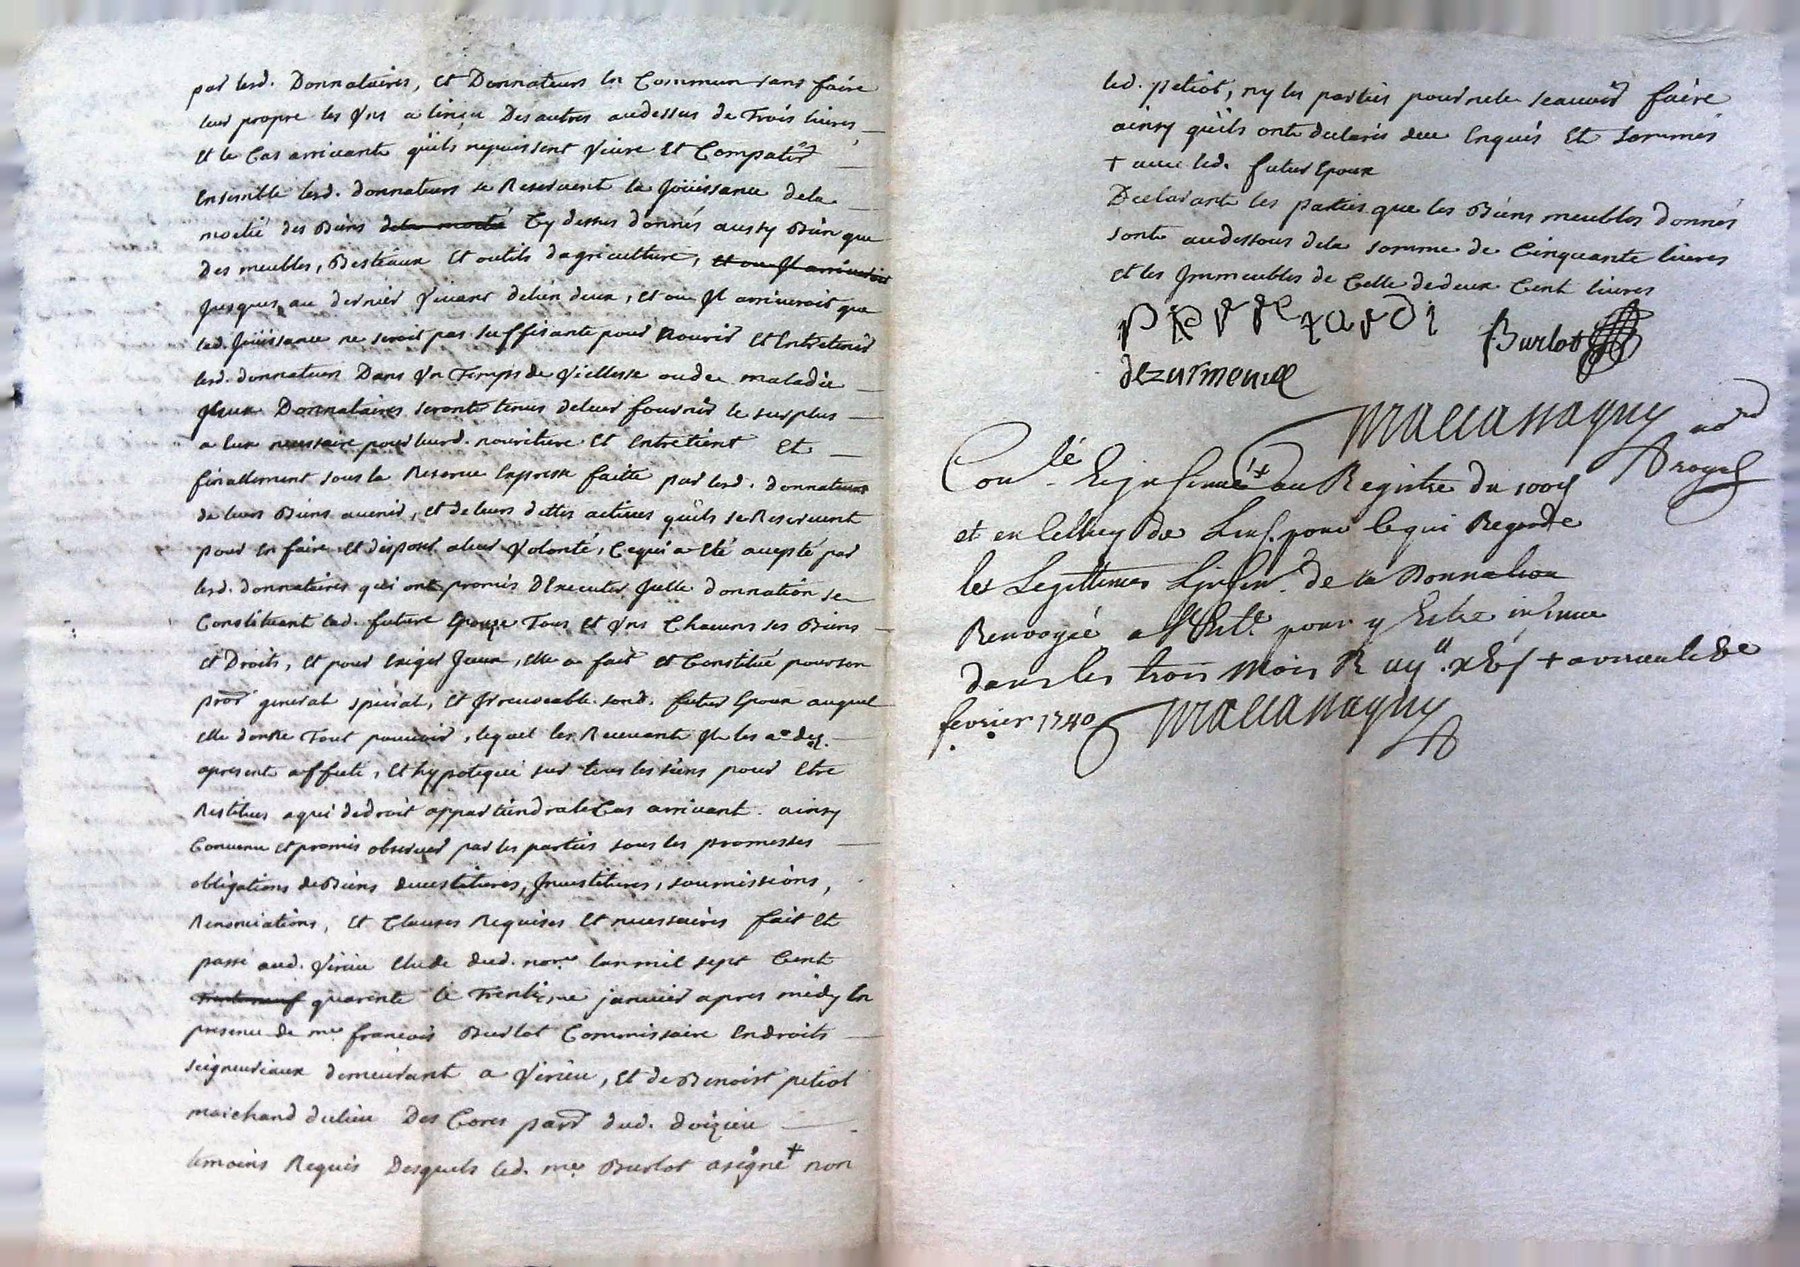 par lesd. Donnataires, et Donnateurs en Commun sans faire
leur propre les Uns a linçu Des autres audessus de Trois livres
et le Cas arrivant qu'ils ne puissent Vivre et Compatir
Ensemble lesd. donnateurs se Reservent la Joüissance dela
moitié des Biens dela moitié Cy dessus donnés aussy Bien que
Des meubles, Bestiaux et outils dagriculture, et ou Il arriveroit
Jusques au dernier Vivant delun deux, et ou Il arriveroit que
lad. Joüissance ne seroit pas suffisante pour Nourir et Entretenir
lesd. donnateurs Dans Un Temps de Viellesse ou de maladie
Donnataires seront tenus deleur fournir le surplus
a Eux necessaire pour leurd. nouriture et Entretient et
finallement sous la Reserve Expresse faitte par lesd. donnateurs
de leurs Biens avenir, et de leurs dettes actives quils se Reservent
pour En faire et disposer aleur Volonté, Cequi a Eté accepté par
lesd. donnataires qui ont promis DExecuter Jcelle donnation se
Constituant lad. future Epouze Tous et Uns Chacuns ses Biens
et Droits, et pour Exiger Jceux, elle a fait et Constitué pour son
procr general special, et Jrrevocable sond. futur Epoux auquel
elle donne Tout pouvoir, lequel les Recevant Il les a des
apresent affecté, et hypotequé sur tous les siens pour etre
Restitués aqui dedroit appartiendra le Cas arrivant. ainsy
Convenu et promis observer par les parties sous les promesses
obligations de Biens devestitures, Jnvestitures, soumissions,
Renonciations, et Clauses Requises et necessaires fait et
passé aud. Virieu Etude dud. nore lan mil sept Cent
trente neuf quarente le Trentieme janvier apres midy En
presence de me francois Burlot Commissaire En droits
seigneuriaux demeurant a Virieu, et de Benoist petiot
marchand dulieu Des Cores parr dud. doizieu
temoins Requis Desquels led. me Burlot a signé + non
led. petiot, ny les parties pour ne le scavoir faire
ainsy quils ont declarés deue Enquis et sommés
+ avec led. futur Epoux
Declarant les parties que les Biens meubles donnés
sont audessous dela somme de Cinquante livres
et les Jmmeubles de Celle dedeux Cent livres
Burlot
dezurmeure
Conlé au Registre du
et en Celluy de pour lequi Regarde
les de la Donnation
Renvoyée a pour y Estre insinue
dans les trois mois
fevrier 1740